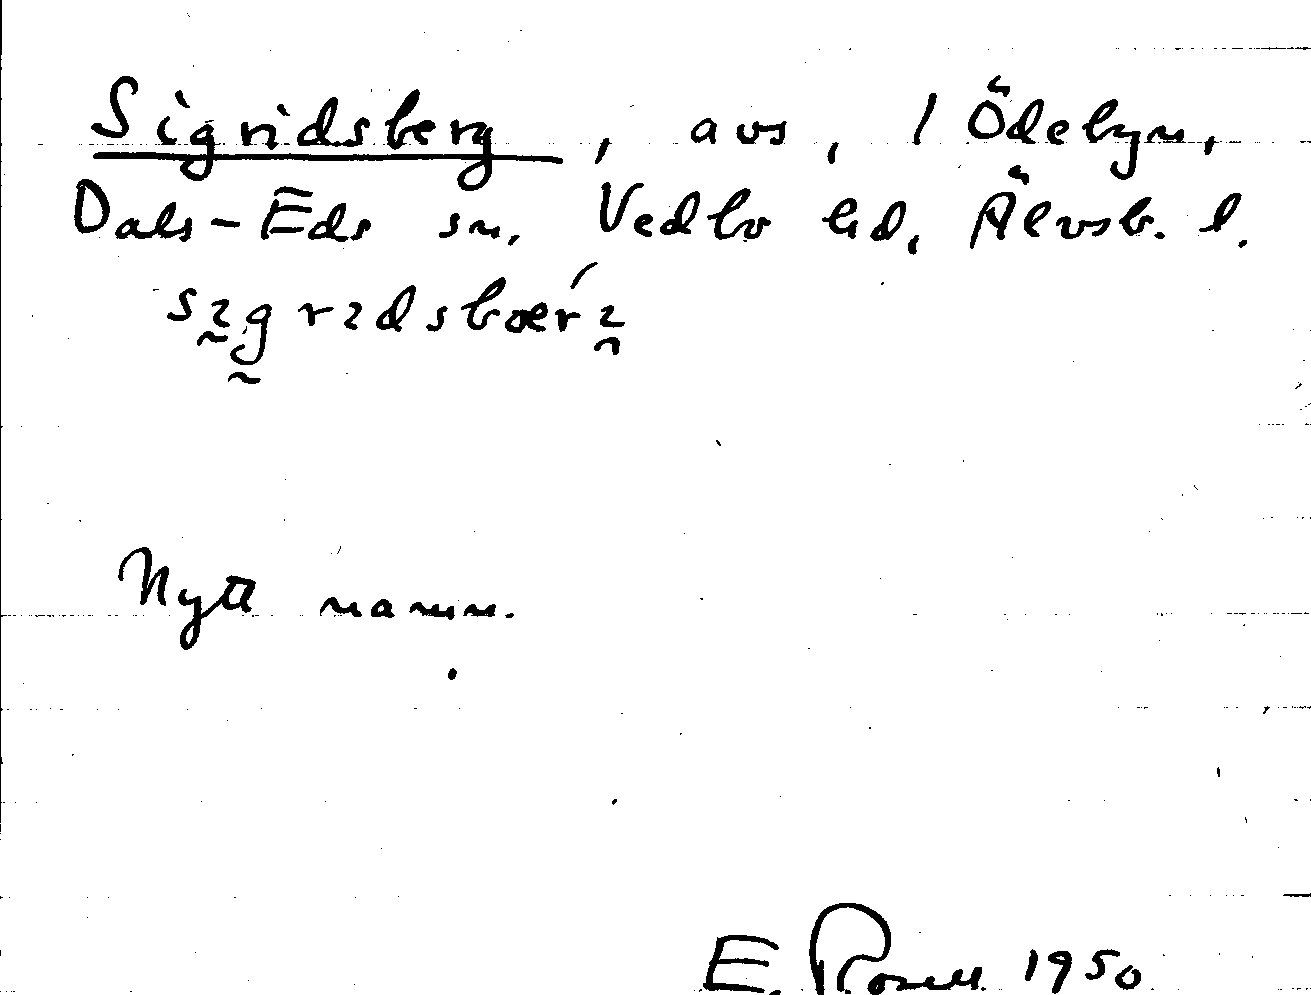 Sigridsberg, avs, 1 Ödebyn,
Dals-Eds sn, Vedbo hd, Älvsb. l.
Nytt namn.
E. Rosell 1950